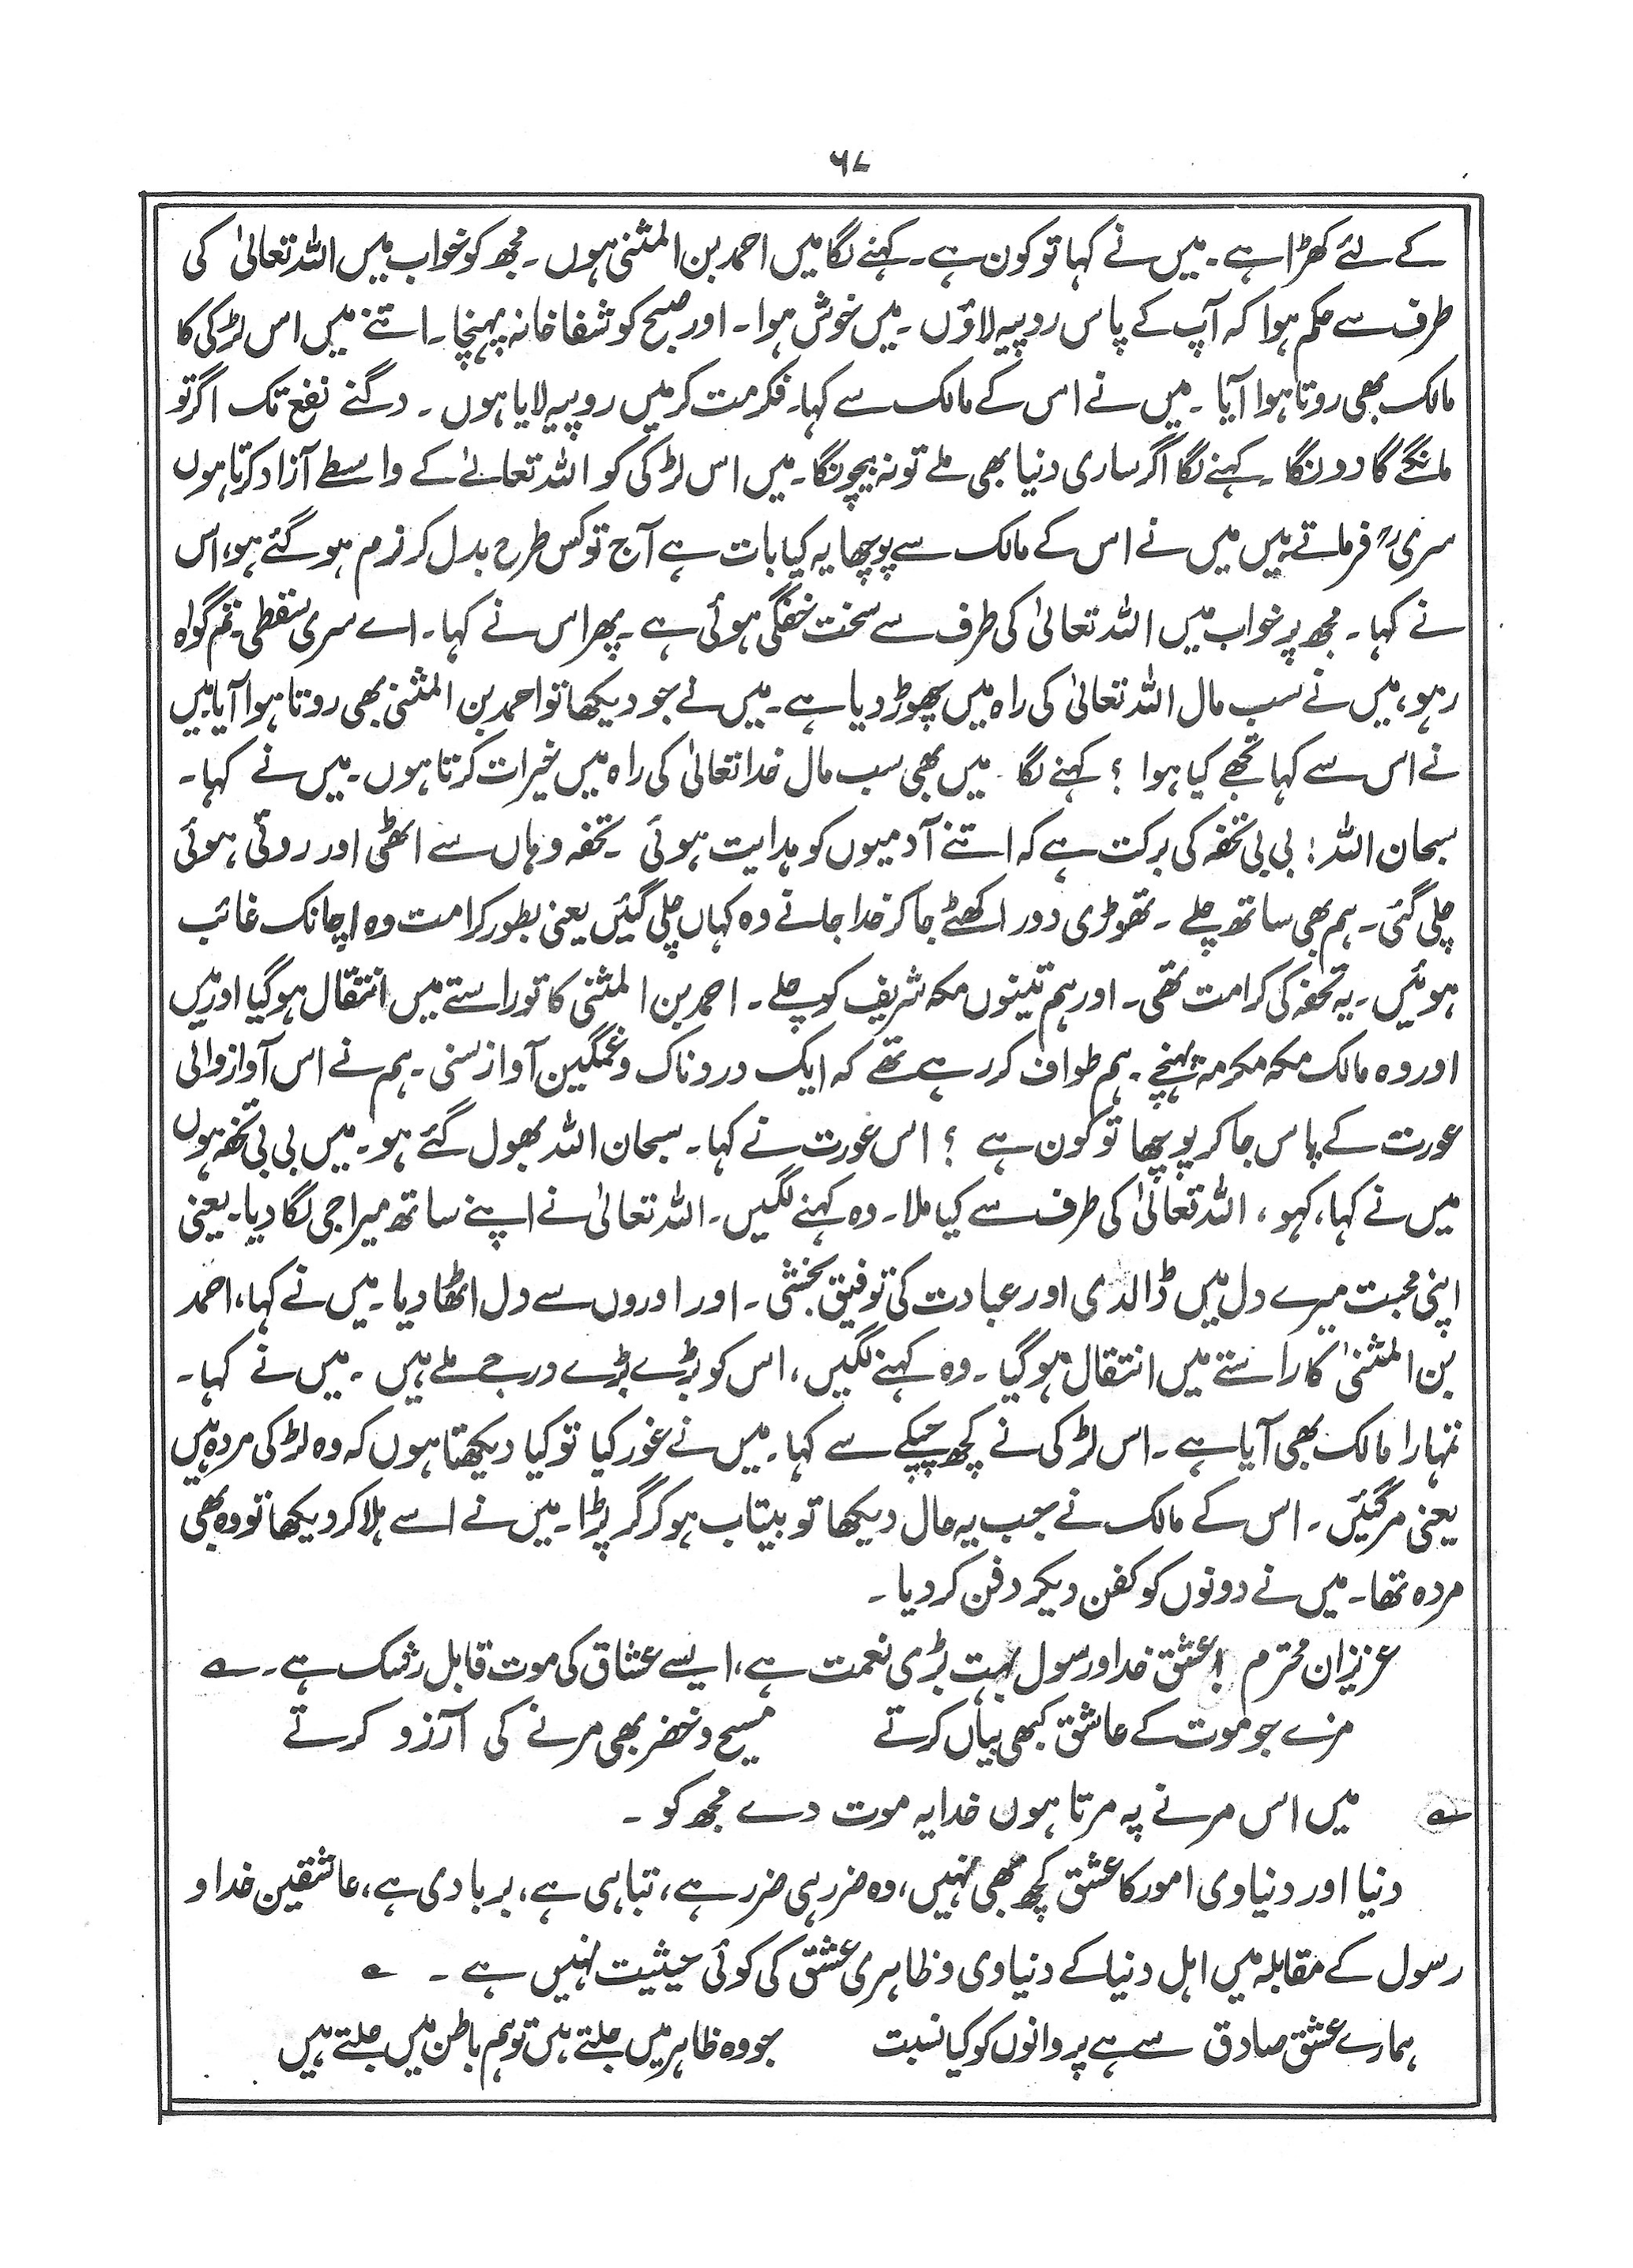 ۶۷
کے لئے کھڑا ہے۔ میں نے کہا تو کون ہے۔ کہنے لگا میں احمد بن المثنی ہوں۔ مجھ کو خواب میں اللہ تعالیٰ کی
طرف سے حکم ہوا کہ آپ کے پاس روپیہ لاؤں۔ میں خوش ہوا۔ اور صبح کو شفا خانہ پہنچا۔ اتنے میں اس لڑکی کا
مالک بھی روتا ہوا آیا۔ میں نے اس کے مالک سے کہا۔ فکر مت کر میں روپیہ لایا ہوں۔ دگنے نفع تک اگر تو
مانگے گا دونگا۔ کہنے لگا اگر ساری دنیا بھی ملے تو نہ بیچونگا۔ میں اس لڑکی کو اللہ تعالےٰ کے واسطے آزاد کرتا ہوں
سریؒ فرماتے ہیں میں نے اس کے مالک سے پوچھا یہ کیا بات ہے آج تو کس طرح بدل کر نرم ہو گئے ہو، اس
نے کہا۔ مجھ پر خواب میں اللہ تعالیٰ کی طرف سے سخت خفگی ہوئی ہے۔ پھر اس نے کہا۔ اے سری سقطی۔ تم گواہ
رہو، میں نے سب مال اللہ تعالیٰ کی راہ میں چھوڑ دیا ہے۔ میں نے جو دیکھا تو احمد بن المثنی بھی روتا ہوا آیا میں
نے اس سے کہا تجھے کیا ہوا ؟ کہنے لگا۔ میں بھی سب مال خدا تعالیٰ کی راہ میں خیرات کرتا ہوں۔ میں نے کہا۔
سبحان اللہ! بی بی تحفہ کی برکت ہے کہ اتنے آدمیوں کو ہدایت ہوئی۔ تحفہ وہاں سے اٹھی اور روتی ہوئی
چلی گئی۔ ہم بھی ساتھ چلے۔ تھوڑی دور اکھٹے جا کر خدا جانے وہ کہاں چلی گئیں یعنی بطور کرامت وہ اچانک غائب
ہوئیں۔ یہ تحفہ کی کرامت تھی۔ اور ہم تینوں مکہ شریف کو چلے۔ احمد بن المثنی کا تو راستے میں انتقال ہو گیا اور میں
اور وہ مالک مکہ مکرمہ پہنچے۔ ہم طواف کر رہے تھے کہ ایک دردناک و غمگین آواز سنی۔ ہم نے اس آواز والی
عورت کے پاس جا کر پوچھا تو کون ہے ؟ اس عورت نے کہا۔ سبحان اللہ بھول گئے ہو۔ میں بی بی تحفہ ہوں
میں نے کہا، کہو، اللہ تعالیٰ کی طرف سے کیا ملا۔ وہ کہنے لگیں۔ اللہ تعالیٰ نے اپنے ساتھ میرا جی لگا دیا۔ یعنی
اپنی محبت میرے دل میں ڈالدی اور عبادت کی توفیق بخشی۔ اور اوروں سے دل اٹھا دیا۔ میں نے کہا، احمد
بن المثنیٰ کا راستے میں انتقال ہو گیا۔ وہ کہنے لگیں، اس کو بڑے بڑے درجے ملے ہیں۔ میں نے کہا۔
تمہارا مالک بھی آیا ہے۔ اس لڑکی نے کچھ چپکے سے کہا۔ میں نے غور کیا تو کیا دیکھتا ہوں کہ وہ لڑکی مردہ ہیں
یعنی مر گئیں۔ اس کے مالک نے جب یہ حال دیکھا تو بیتاب ہو کر گر پڑا۔ میں نے اسے ہلا کر دیکھا تو وہ بھی
مردہ تھا۔ میں نے دونوں کو کفن دیکر دفن کر دیا۔
عزیزان محترم ! عشق خدا و رسول بہت بڑی نعمت ہے، ایسے عشاق کی موت قابل رشک ہے۔ ؎
مزے جو موت کے عاشق کبھی بیاں کرتے مسیح و خضر بھی مرنے کی آرزو کرتے
؎ میں اس مرنے پہ مرتا ہوں خدا یہ موت دے مجھ کو۔
دنیا اور دنیاوی امور کا عشق کچھ بھی نہیں، وہ ضرر ہی ضرر ہے، تباہی ہے، بربادی ہے، عاشقین خدا و
رسول کے مقابلہ میں اہل دنیا کے دنیاوی و ظاہری عشق کی کوئی حیثیت نہیں ہے۔ ؎
ہمارے عشق صادق سے ہے پروانوں کو کیا نسبت جو وہ ظاہر میں جلتے ہیں تو ہم باطن میں جلتے ہیں